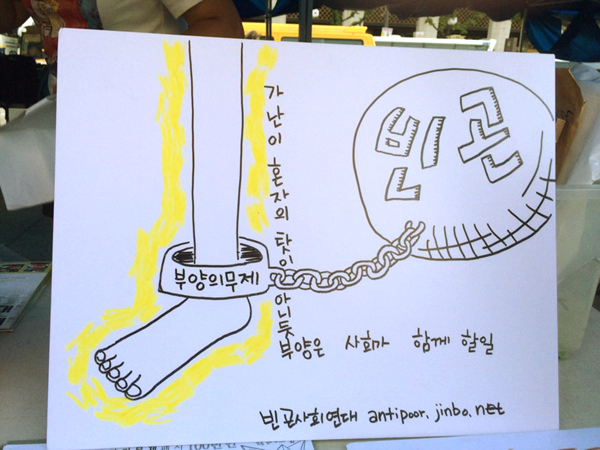 빈곤
가난이 혼자의 탓이 아닌듯
부양의무제
부양은 사회가 함께 할일
빈곤사회연대 antipoor.jinbo.net